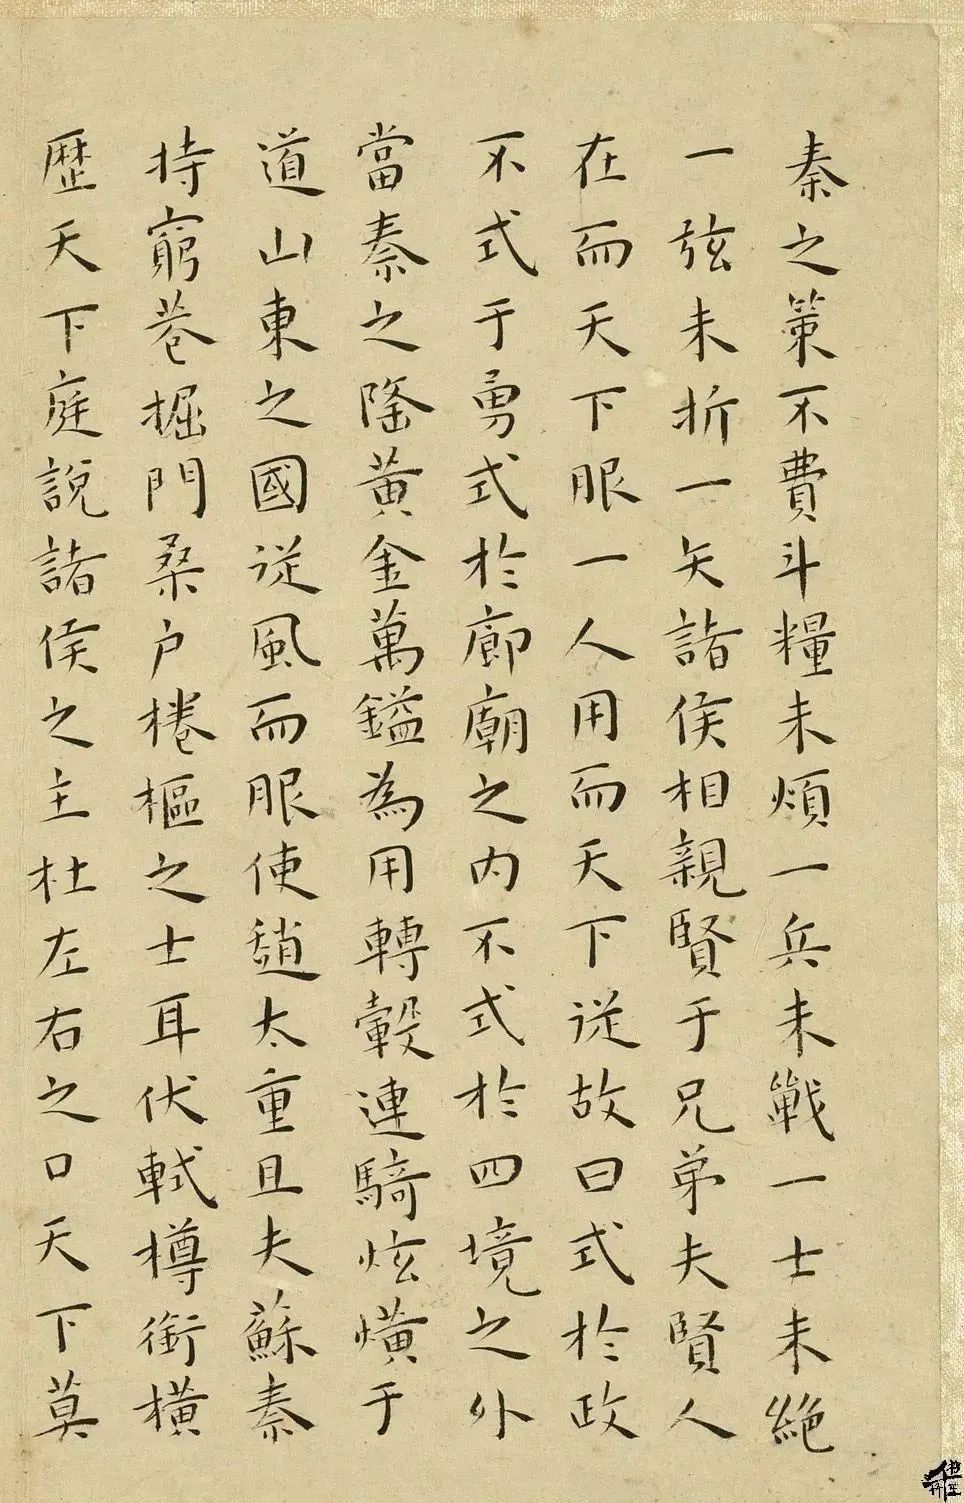 秦之策不費斗糧未煩一兵未戰一士未絕
一弦未折一矢諸侯相親賢于兄弟夫賢人
在而天下服一人用而天下從故曰式於政
不式于勇式於廊廟之內不式於四境之外
當秦之隆黃金萬鎰為用轉轂連騎炫熿于
道山東之國從風而服使趙太重且夫蘇秦
持窮巷掘門桑戶棬樞之士耳伏軾樽銜橫
歷天下庭說諸侯之主杜左右之口天下莫